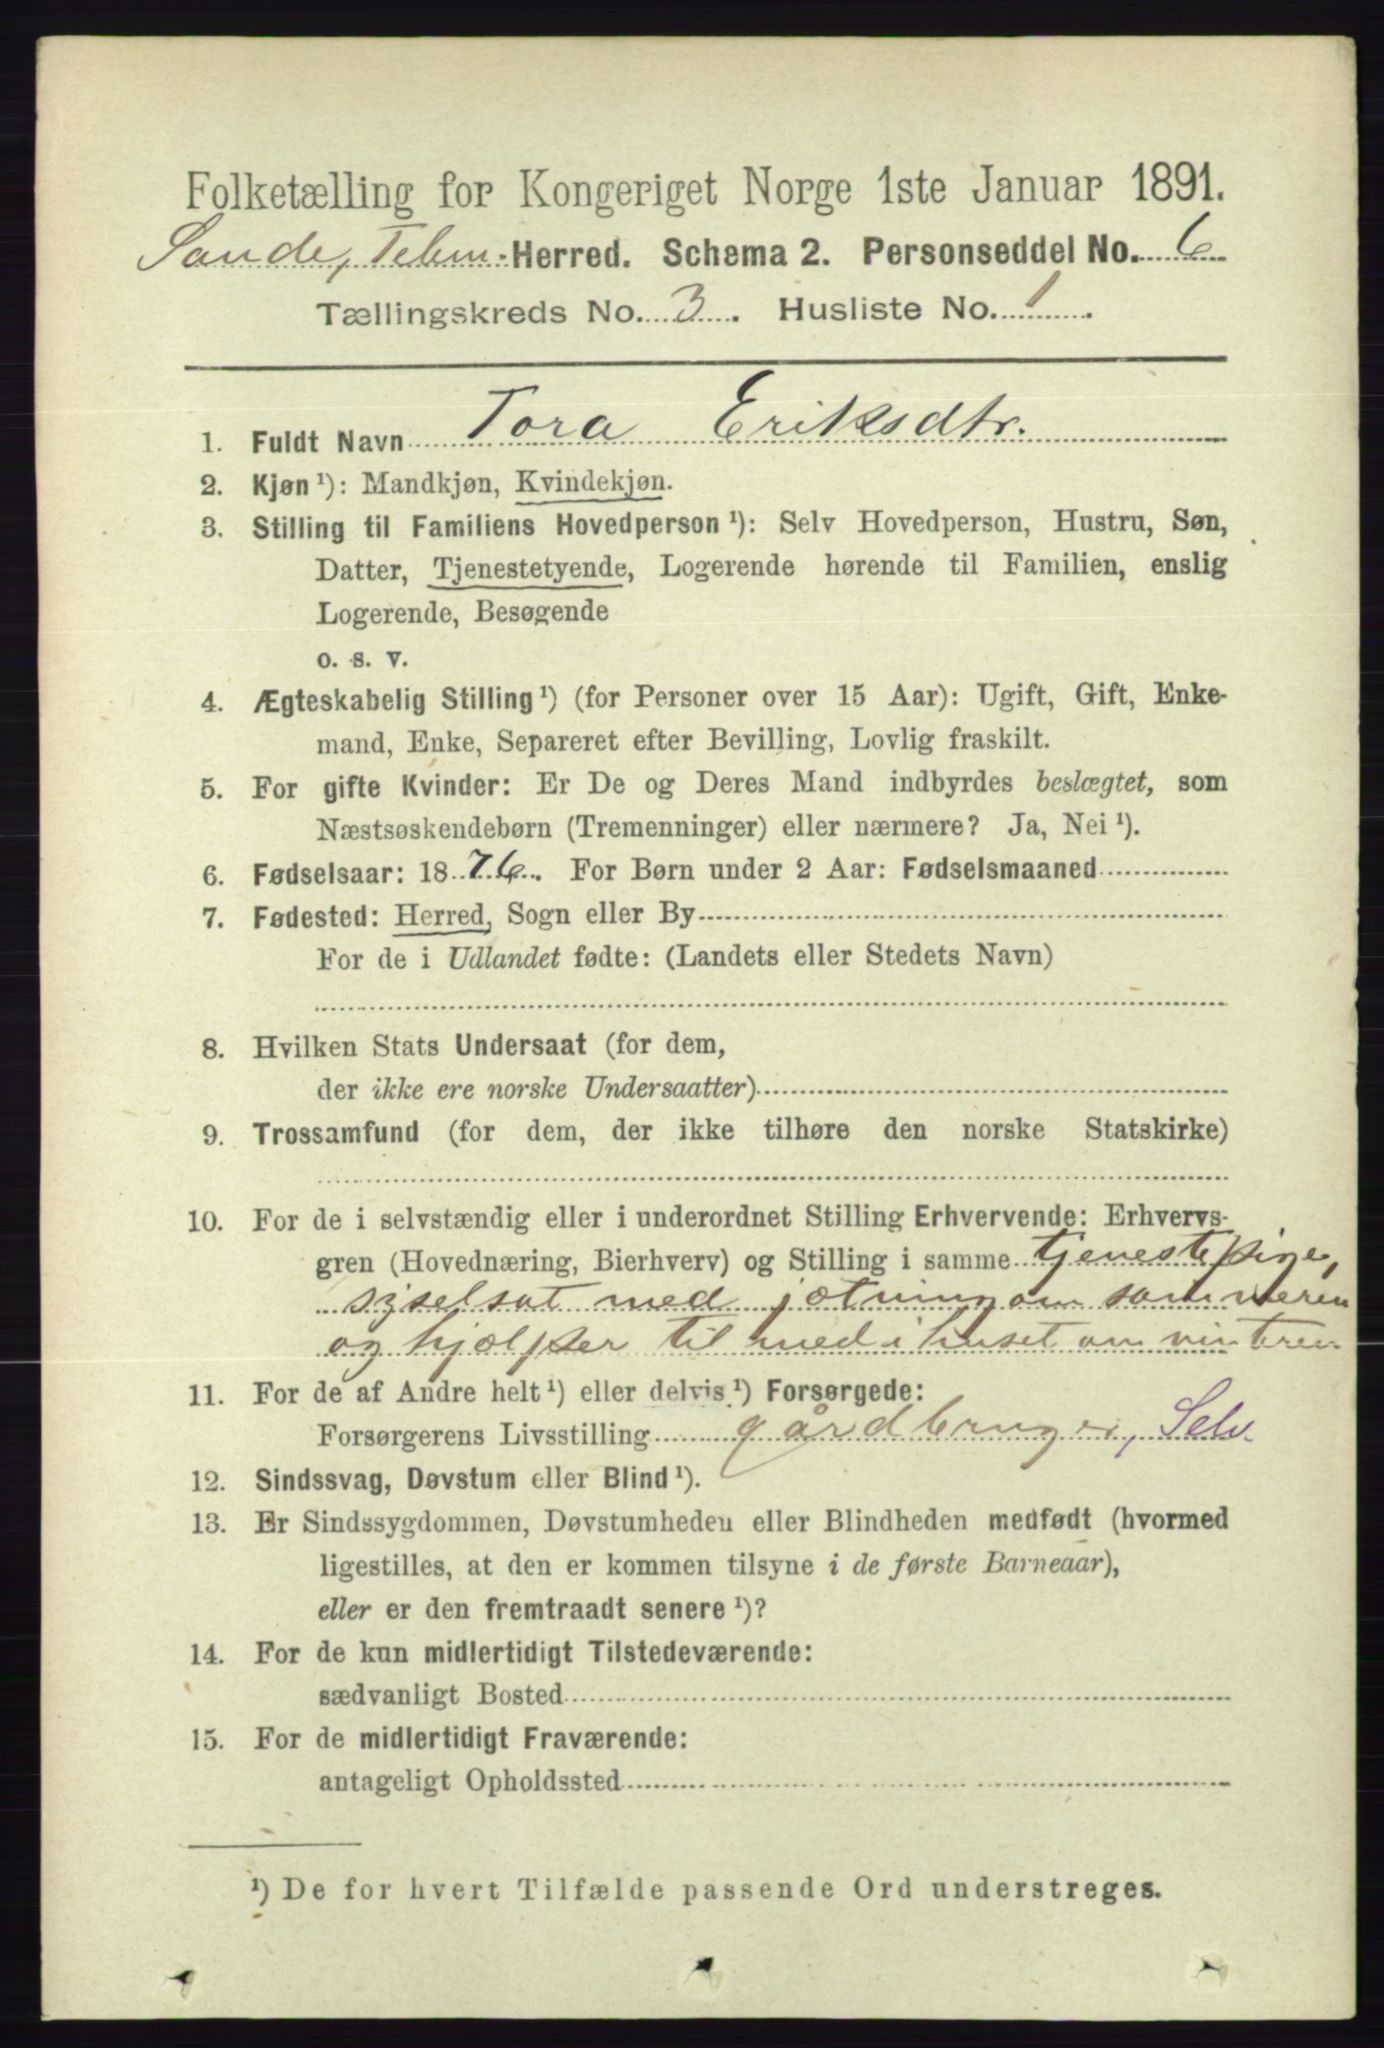 Folketælling for Kongeriget Norge 1ste Januar 1891.
Sande, Telem. Herred. Schema 2. Personseddel No. 6
Tællingskreds No. 3. Husliste No. 1
1. Fuldt Navn Tora Eriksdtr.
2. Kjøn ¹): Mandkjøn, Kvindekjøn.
3. Stilling til Familiens Hovedperson ¹): Selv Hovedperson, Hustru, Søn,
Datter, Tjenestetyende, Logerende hørende til Familien, enslig
Logerende, Besøgende
o. s. v.
4. Ægteskabelig Stilling ¹) (for Personer over 15 Aar): Ugift, Gift, Enke-
mand, Enke, Separeret efter Bevilling, Lovlig fraskilt.
5. For gifte Kvinder: Er De og Deres Mand indbyrdes beslægtet, som
Næstsøskendebørn (Tremenninger) eller nærmere? Ja, Nei ¹).
6. Fødselsaar: 1876. For Børn under 2 Aar: Fødselsmaaned
7. Fødested: Herred, Sogn eller By
For de i Udlandet fødte: (Landets eller Stedets Navn)
8. Hvilken Stats Undersaat (for dem,
der ikke ere norske Undersaatter)
9. Trossamfund (for dem, der ikke tilhøre den norske Statskirke)
10. For de i selvstændig eller i underordnet Stilling Erhvervende: Erhvervs-
gren (Hovednæring, Bierhverv) og Stilling i samme tjenestepige,
syselsat med jætning om sommeren
og hjælper til med i huset om vinteren
11. For de af Andre helt ¹) eller delvis ¹) Forsørgede:
Forsørgerens Livsstilling gårdbruger, Selv.
12. Sindssvag, Døvstum eller Blind ¹).
13. Er Sindssygdommen, Døvstumheden eller Blindheden medfødt (hvormed
ligestilles, at den er kommen tilsyne i de første Barneaar),
eller er den fremtraadt senere ¹)?
14. For de kun midlertidigt Tilstedeværende:
sædvanligt Bosted
15. For de midlertidigt Fraværende:
antageligt Opholdssted
¹) De for hvert Tilfælde passende Ord understreges.